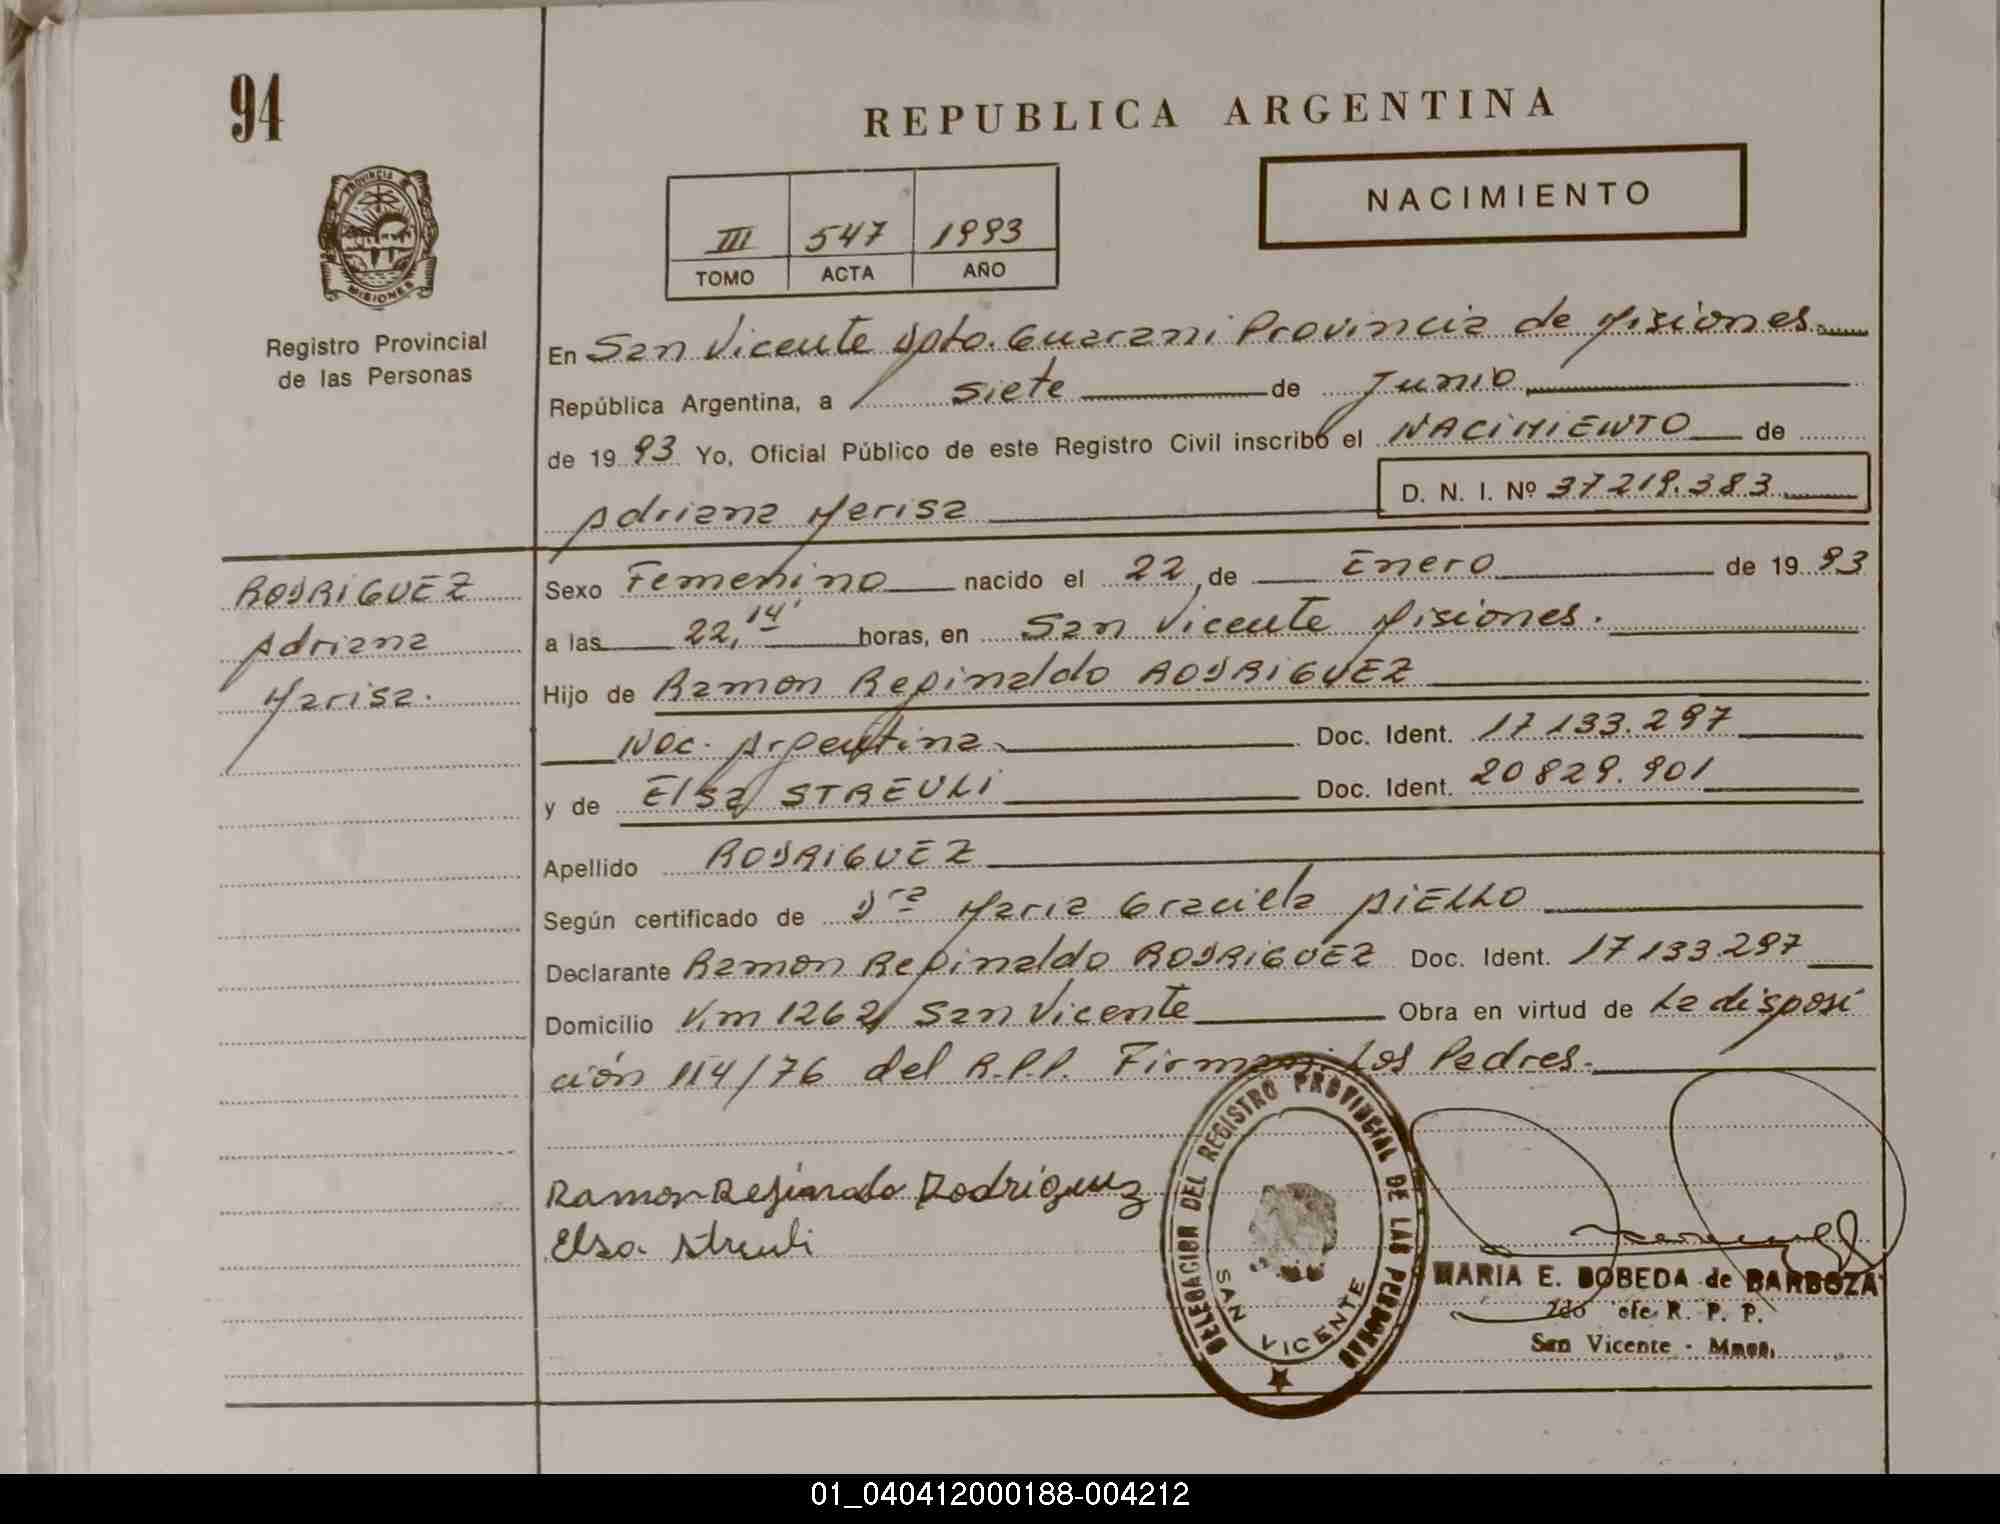 94
REPUBLICA ARGENTINA
PROVINCIA
MISIONES
Registro Provincial
de las Personas
III 547 1993
TOMO ACTA AÑO
NACIMIENTO
En San Vicente Dpto. Guarani Provincia de Misiones.
República Argentina, a siete de Junio
de 19 93 Yo, Oficial Público de este Registro Civil inscribo el NACIMIENTO de
Adriana Marisa D. N. I. Nº 37219.383
RODRIGUEZ
Adriana
Marisa.
Sexo Femenino nacido el 22 de Enero de 19 93
a las 22,14' horas, en San Vicente Misiones.
Hijo de Ramon Reginaldo RODRIGUEZ
Nac. Argentina Doc. Ident. 17133.297
y de Elsa STREULI Doc. Ident. 20829.901
Apellido RODRIGUEZ
Según certificado de Dra Maria Graciela AIELLO
Declarante Ramon Reginaldo RODRIGUEZ Doc. Ident. 17133.297
Domicilio Km 1262 San Vicente Obra en virtud de La disposi
ción 114/76 del R.P.P. Firman: Los Padres.
Ramon Reginaldo Rodriguez
Elsa Streuli
DELEGACION DEL REGISTRO PROVINCIAL DE LAS PERSONAS
SAN VICENTE
MARIA E. BOBEDA de BARBOZA
2do R. P. P.
San Vicente - Mnes.
01_040412000188-004212